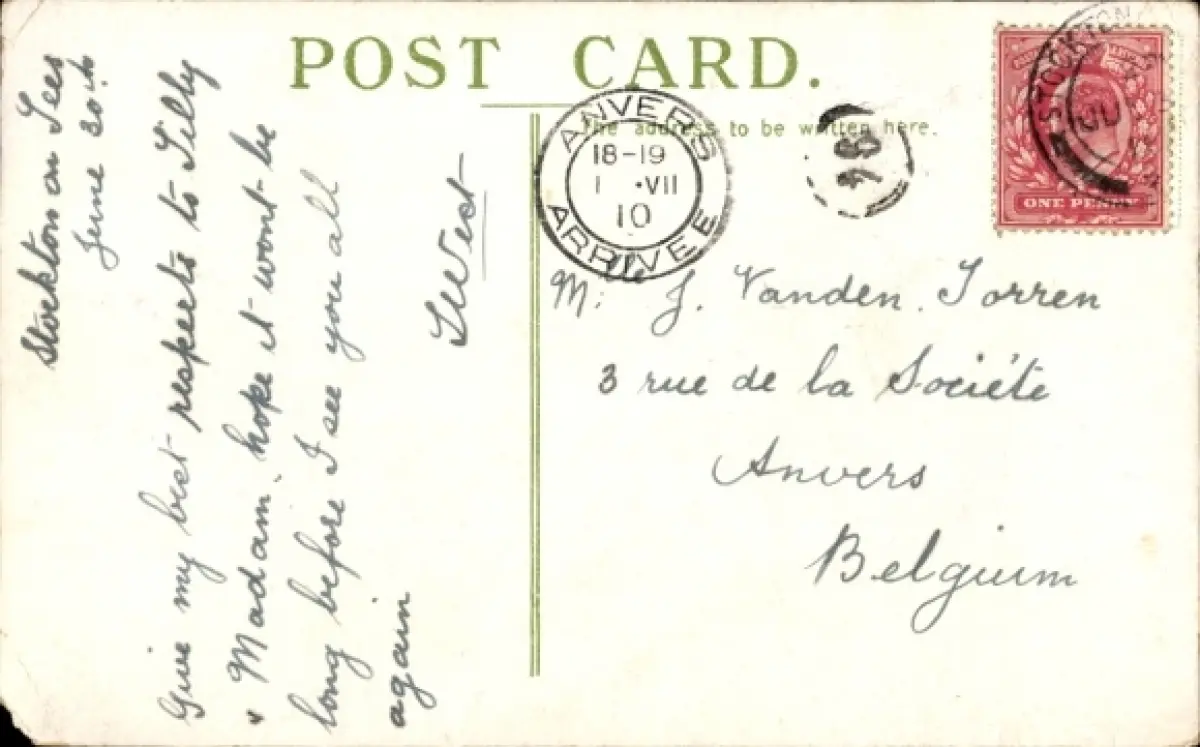 POST CARD.
The address to be written here.
ANVERS
18-19
1 •VII
10
ARRIVEE
STOCKTON ON
ONE PENNY
Stockton on Tees
June 30th
Give my best respects to Tilly
" Madam, hope it wont be
long before I see you all
again
West
J. Vanden Torren
3 rue de la Sociéte
Anvers
Belgium